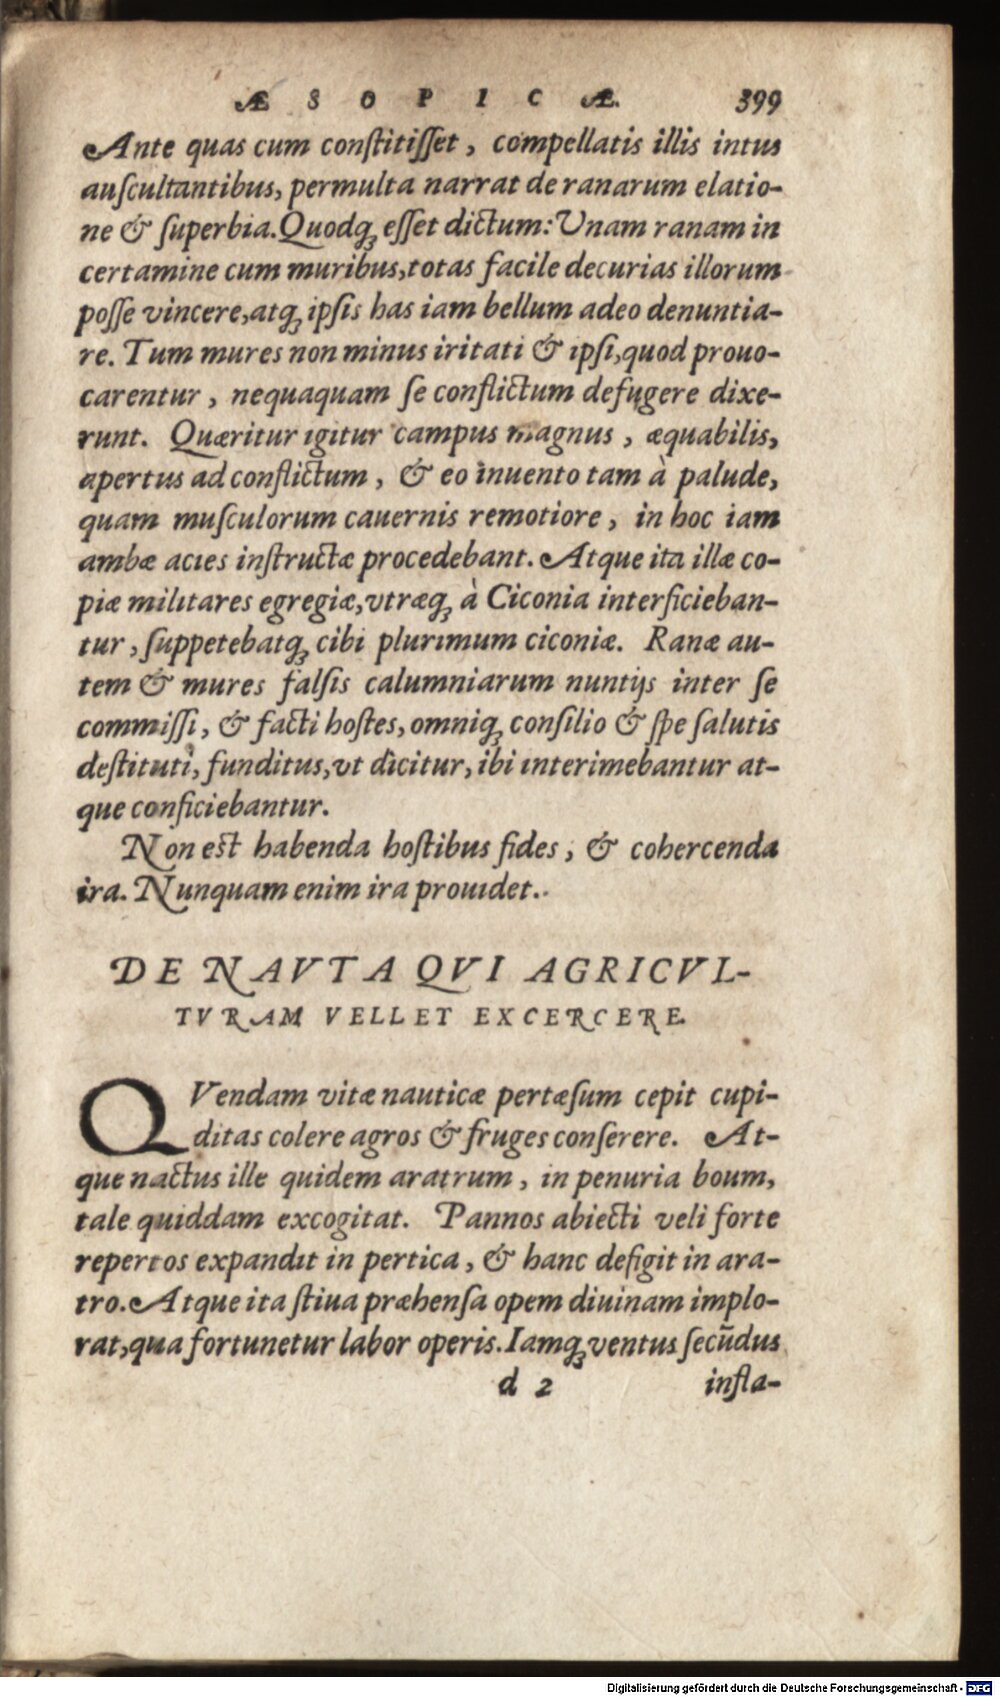 ÆSOPICÆ. 399
Ante quas cum conſtitiſſet, compellatis illis intus
auſcultantibus, permulta narrat de ranarum elatio-
ne & ſuperbia. Quodq́ꝫ eſſet dictum: Unam ranam in
certamine cum muribus, totas facile decurias illorum
poſſe vincere, atqꝫ ipſis has iam bellum adeo denuntia-
re. Tum mures non minus iritati & ipſi, quod prouo-
carentur, nequaquam ſe conflictum defugere dixe-
runt. Quæritur igitur campus magnus, æquabilis,
apertus ad conflictum, & eo inuento tam à palude,
quam muſculorum cauernis remotiore, in hoc iam
ambæ acies inſtructæ procedebant. Atque ita illæ co-
piæ militares egregiæ, vtræqꝫ à Ciconia interficieban-
tur, ſuppetebatqꝫ cibi plurimum ciconiæ. Ranæ au-
tem & mures falſis calumniarum nuntijs inter ſe
commiſſi, & facti hoſtes, omniqꝫ conſilio & ſpe ſalutis
deſtituti, funditus, vt dicitur, ibi interimebantur at-
que conficiebantur.
Non est habenda hoſtibus fides, & cohercenda
ira. Nunquam enim ira prouidet.
DE NAVTA QVI AGRICVL-
TVRAM VELLET EXCERCERE.
QVendam vitæ nauticæ pertæſum cepit cupi-
ditas colere agros & fruges conſerere. At-
que nactus ille quidem aratrum, in penuria boum,
tale quiddam excogitat. Pannos abiecti veli forte
repertos expandit in pertica, & hanc defigit in ara-
tro. Atque ita ſtiua præhenſa opem diuinam implo-
rat, qua fortunetur labor operis. Iamqꝫ ventus ſecũdus
d 2 infla-
Digitalisierung gefördert durch die Deutsche Forschungsgemeinschaft - DFG